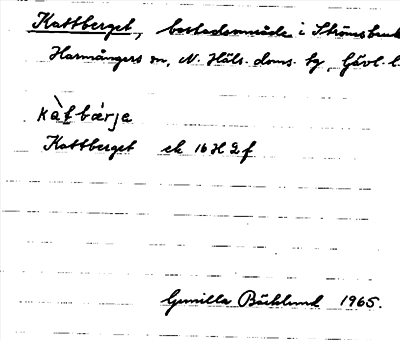 Kattberget, bostadsområde i Strömsbruk
Harmångers sn, N. Häls. doms. bg, Gävl. l.
kàtbærje
Kattberget ek 16 H 2 f
Gunilla Bäcklund 1965.